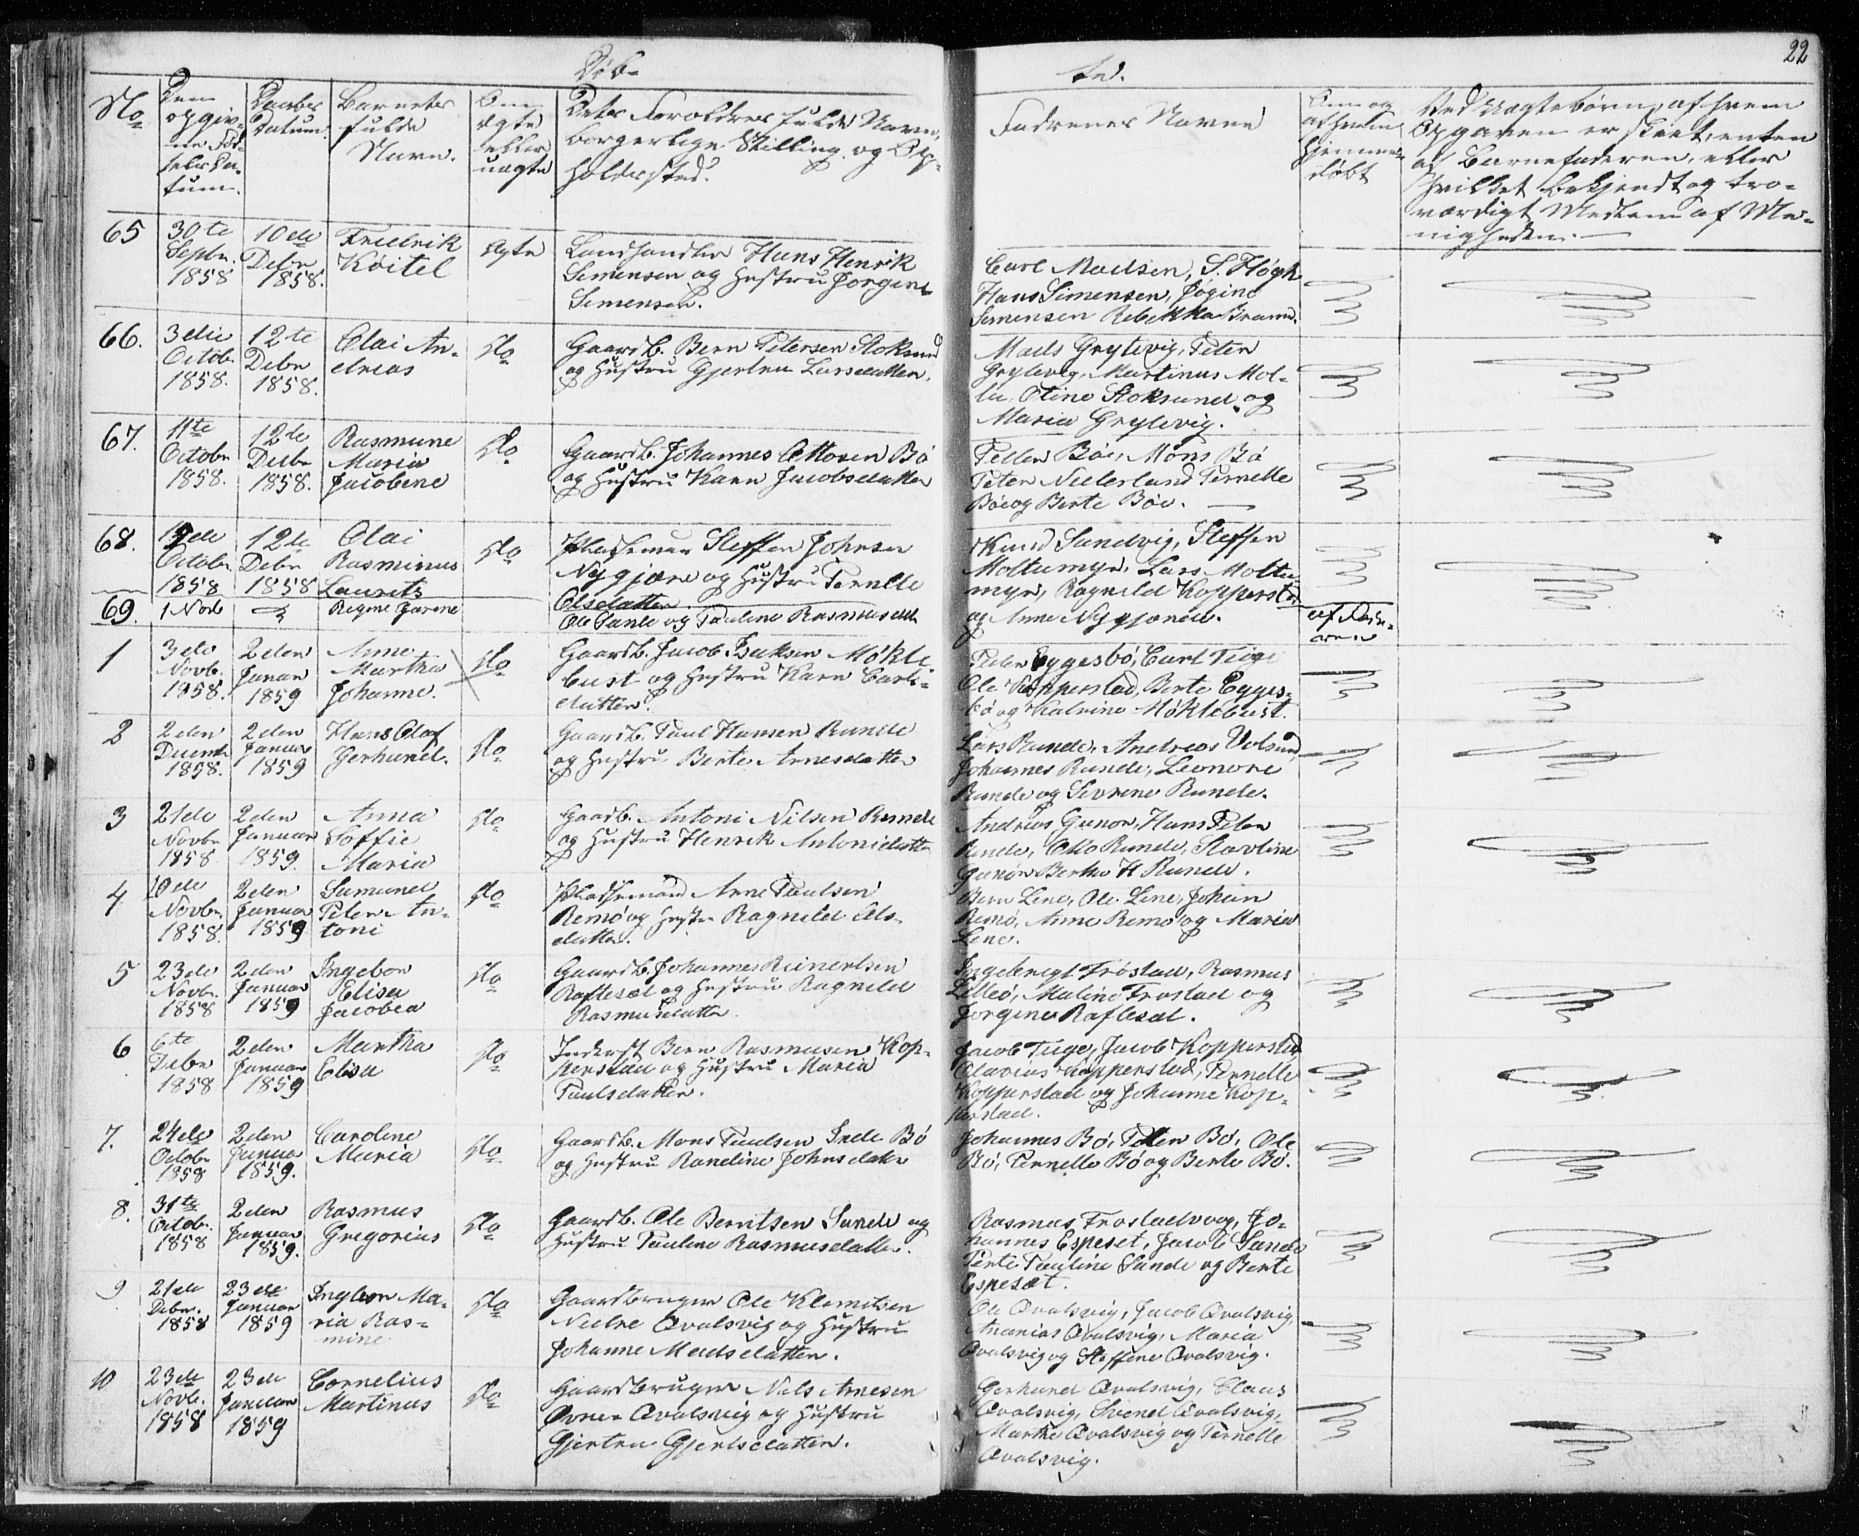 Døb-
te.
22
No
Den opgiv-
ne Fød-
sels Da-
tum.
Daabs
Datum.
Barnets
fulde
Navn.
Om
ægte
eller
uægte
Dets Forældres fulde Navn,
borgerlige Stilling og Op-
holdssted.
Faddernes Navne
Om og
af hvem
hjemme-
døbt
Ved uægte børn, af hvem
Opgaven er skeet, enten
af Barnefaderen, eller
hvilket bekjendt og tro-
værdigt Medlem af Me-
nigheden.
65
30te
Septbr.
1858
10de
Debr
1858.
Fredrik
Køitel
ægte
Landhandler Hans Henrik
Simensen og Hustru Jorgine
Simensen.
Carl Madsen, S. Høgh
Hans Simensen, Jøgine
Simensen Rebekka
66.
3die
Octob.
1858.
12te
Debr
1858.
Olai An-
dreas
do
Gaardb. Bern Petersen Stoksund
og Hustru Gjertru Larsdatter.
Mads Grytevig, Peter
Grytevig, Martinus Mol-
tu, Oline Stoksund og
Maria Grytevig.
67.
11te
Octobr
1858.
12te
Debr
1858.
Rasmune
Maria
Jacobine
do
Gaardb. Johannes Ottosen Bö
og Hustru Karn Jacobsdatter
Petter Böe, Mons Bö
Peter Nederland Pernelle
Böe og Berte Böe.
68.
12de
Octobr
1858
12te
Debr
1858
Olai
Rasminus
Laurits
do
Pladseman Steffen Johnsen
Nygjære og Hustru Pernelle
Olsdatter
Knud Sandvig, Steffen
Moltumyr, Lars Moltu
myr, Ragnild Kopperstad
og Anne Nygjære.
69.
1 Nov
Regine Jarine
Ole Sande og Pauline Rasmusdatt
1
3die
Novb.
1858.
2den
Januar
1859
Anne
Martha
Johanne.
do
Gaardb. Jacob Isaksen Møkle-
bust og Hustru Karn Carls-
datter.
Peder Eggesbö, Carl Tuge
Ole Kopperstad, Berte Egges-
bö og Katrine Møklebust.
2
2den
Decemb
1858.
2den
Januar
1859
Hans Olaf
Gerhard.
do
Gaardb. Paul Hansen Runde
og Hustru Berte Arnesdatter
Lars Runde, Andreas Volsund
Johannes Runde, Leonore
Runde og Severine Runde.
3
21de
Novbr
1858
2den
Januar
1859.
Anna
Soffie
Maria
do
Gaardb. Antoni Nilsen Runde
og Hustru Henrik Antonidatter
Andreas Gunor, Hans Peter
Runde, Otto Runde, Stavline
Gunör Berthe H Runde.
4
10de
Novbr.
1858.
2den
Januar
1859
Samuel
Peter An-
toni
do
Pladsemand Arne Paulsen
Remö og Hustru Ragnild Ols-
datter.
Bern Lene, Ole Lene, Johan
Remö, Anne Remö og Maria
Lene.
5
23de
Novbr.
1858
2den
Januar
1859
Ingebor
Elisa
Jacobea
do
Gaardb. Johannes Reinertsen
Raftesæt og Hustru Ragnild
Rasmusdatter.
Ingebrigt Fröstad, Rasmus
Lilleö, Maline Frostad og
Jorgine Raftesæt.
6
6te
Debr
1858
2den
Januar
1859
Martha
Elisa
do
Inderst Bern Rasmusen Kop-
perstad og Hustru Maria
Paulsdatter.
Jacob Tuge, Jacob Kopperstad
Olavius Kopperstad, Pernelle
Kopperstad og Johanne Kop-
perstad.
7.
24de
Octobr
1858
2den
Januar
1859.
Caroline
Maria
do
Gaardb. Mons Paulsen Inde Bö
og Hustru Randine Johnsdatter
Johannes Bö, Peter Bö, Ole
Bö, Pernelle Bö og Berte Bö.
8.
31te
Octob.
1858
2den
Januar
1859.
Rasmus
Gregorius
do
Gaardb. Ole Berntsen Sande og
Hustru Pauline Rasmusdatter.
Rasmus Frostadvog, Jo-
hannes Espeset, Jacob Sande
Pauline Sande og Berte
Espesæt.
9
21de
Debr.
1858
23de
Januar
1859
Ingebor Ma-
ria Ras-
mine
do
Gaardbruger Ole Klemitsen
Nedre Qvalsvig og Hustru
Johanne Madsdatter.
Ole Qvalsvig, Jacob Qvalsvig,
Ananias Qvalsvig, Maria
Qvalsvig og Steffine Qvalsvig.
10
23de
Novb.
1858
23de
Januar
1859
Cornelius
Martinus
do
Gaardbruger Nils Arnesen
Øvre Qvalsvig og Hustru
Gjertru Gjertsdatter.
Gerhard Qvalsvig, Claus
Qvalsvig, Svend Qvalsvig,
Marthe Qvalsvig og Pernelle
Qvalsvig.